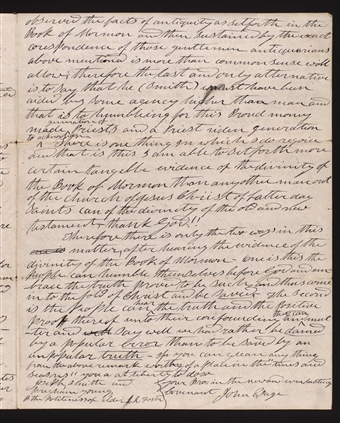 observed the facts of antiquity as set forth in the
Book of Mormon and then sustained by the exact
corespondence of those gentlemen antiquarians
above mentioned is more than common sense will
allow; therefore the last and only alternative
is to say that he (Smith) must have been
aided by some agency higher than man and
that is to humbleing for this Proud money
generation of
made Priests and a Priest riden generation
to acknowledge
There is one thing in which I do rejoice
and that is this I am able to set forth more
certain tangible evidence of the divinity of
the Book of Mormon than any other man out
of the church of Jesus Christ of Latter day
Saints can of the divinity of the old and new
testament, thank God!!
Therefore there is only the two ways in this
matter, after hearing the evidence of the
divinity of the Book of Mormon one is this the
People can humble themselves before God and em
brace the truth prove to be such and thus come
in to the fold of Christ and be Saved. The second
is the People can hear the truth and the Positive
Proof thereof unto their confounding that they must
err and Say well we had rather be damed
by a popular error than to be Saved by an
unpopular truth - If you can glean any thing
from the above worthy of a place in the times and
seasons" you are at liberty to do so
Joseph Smith and
your Bro in the new and everlasting
Covenant John E Page